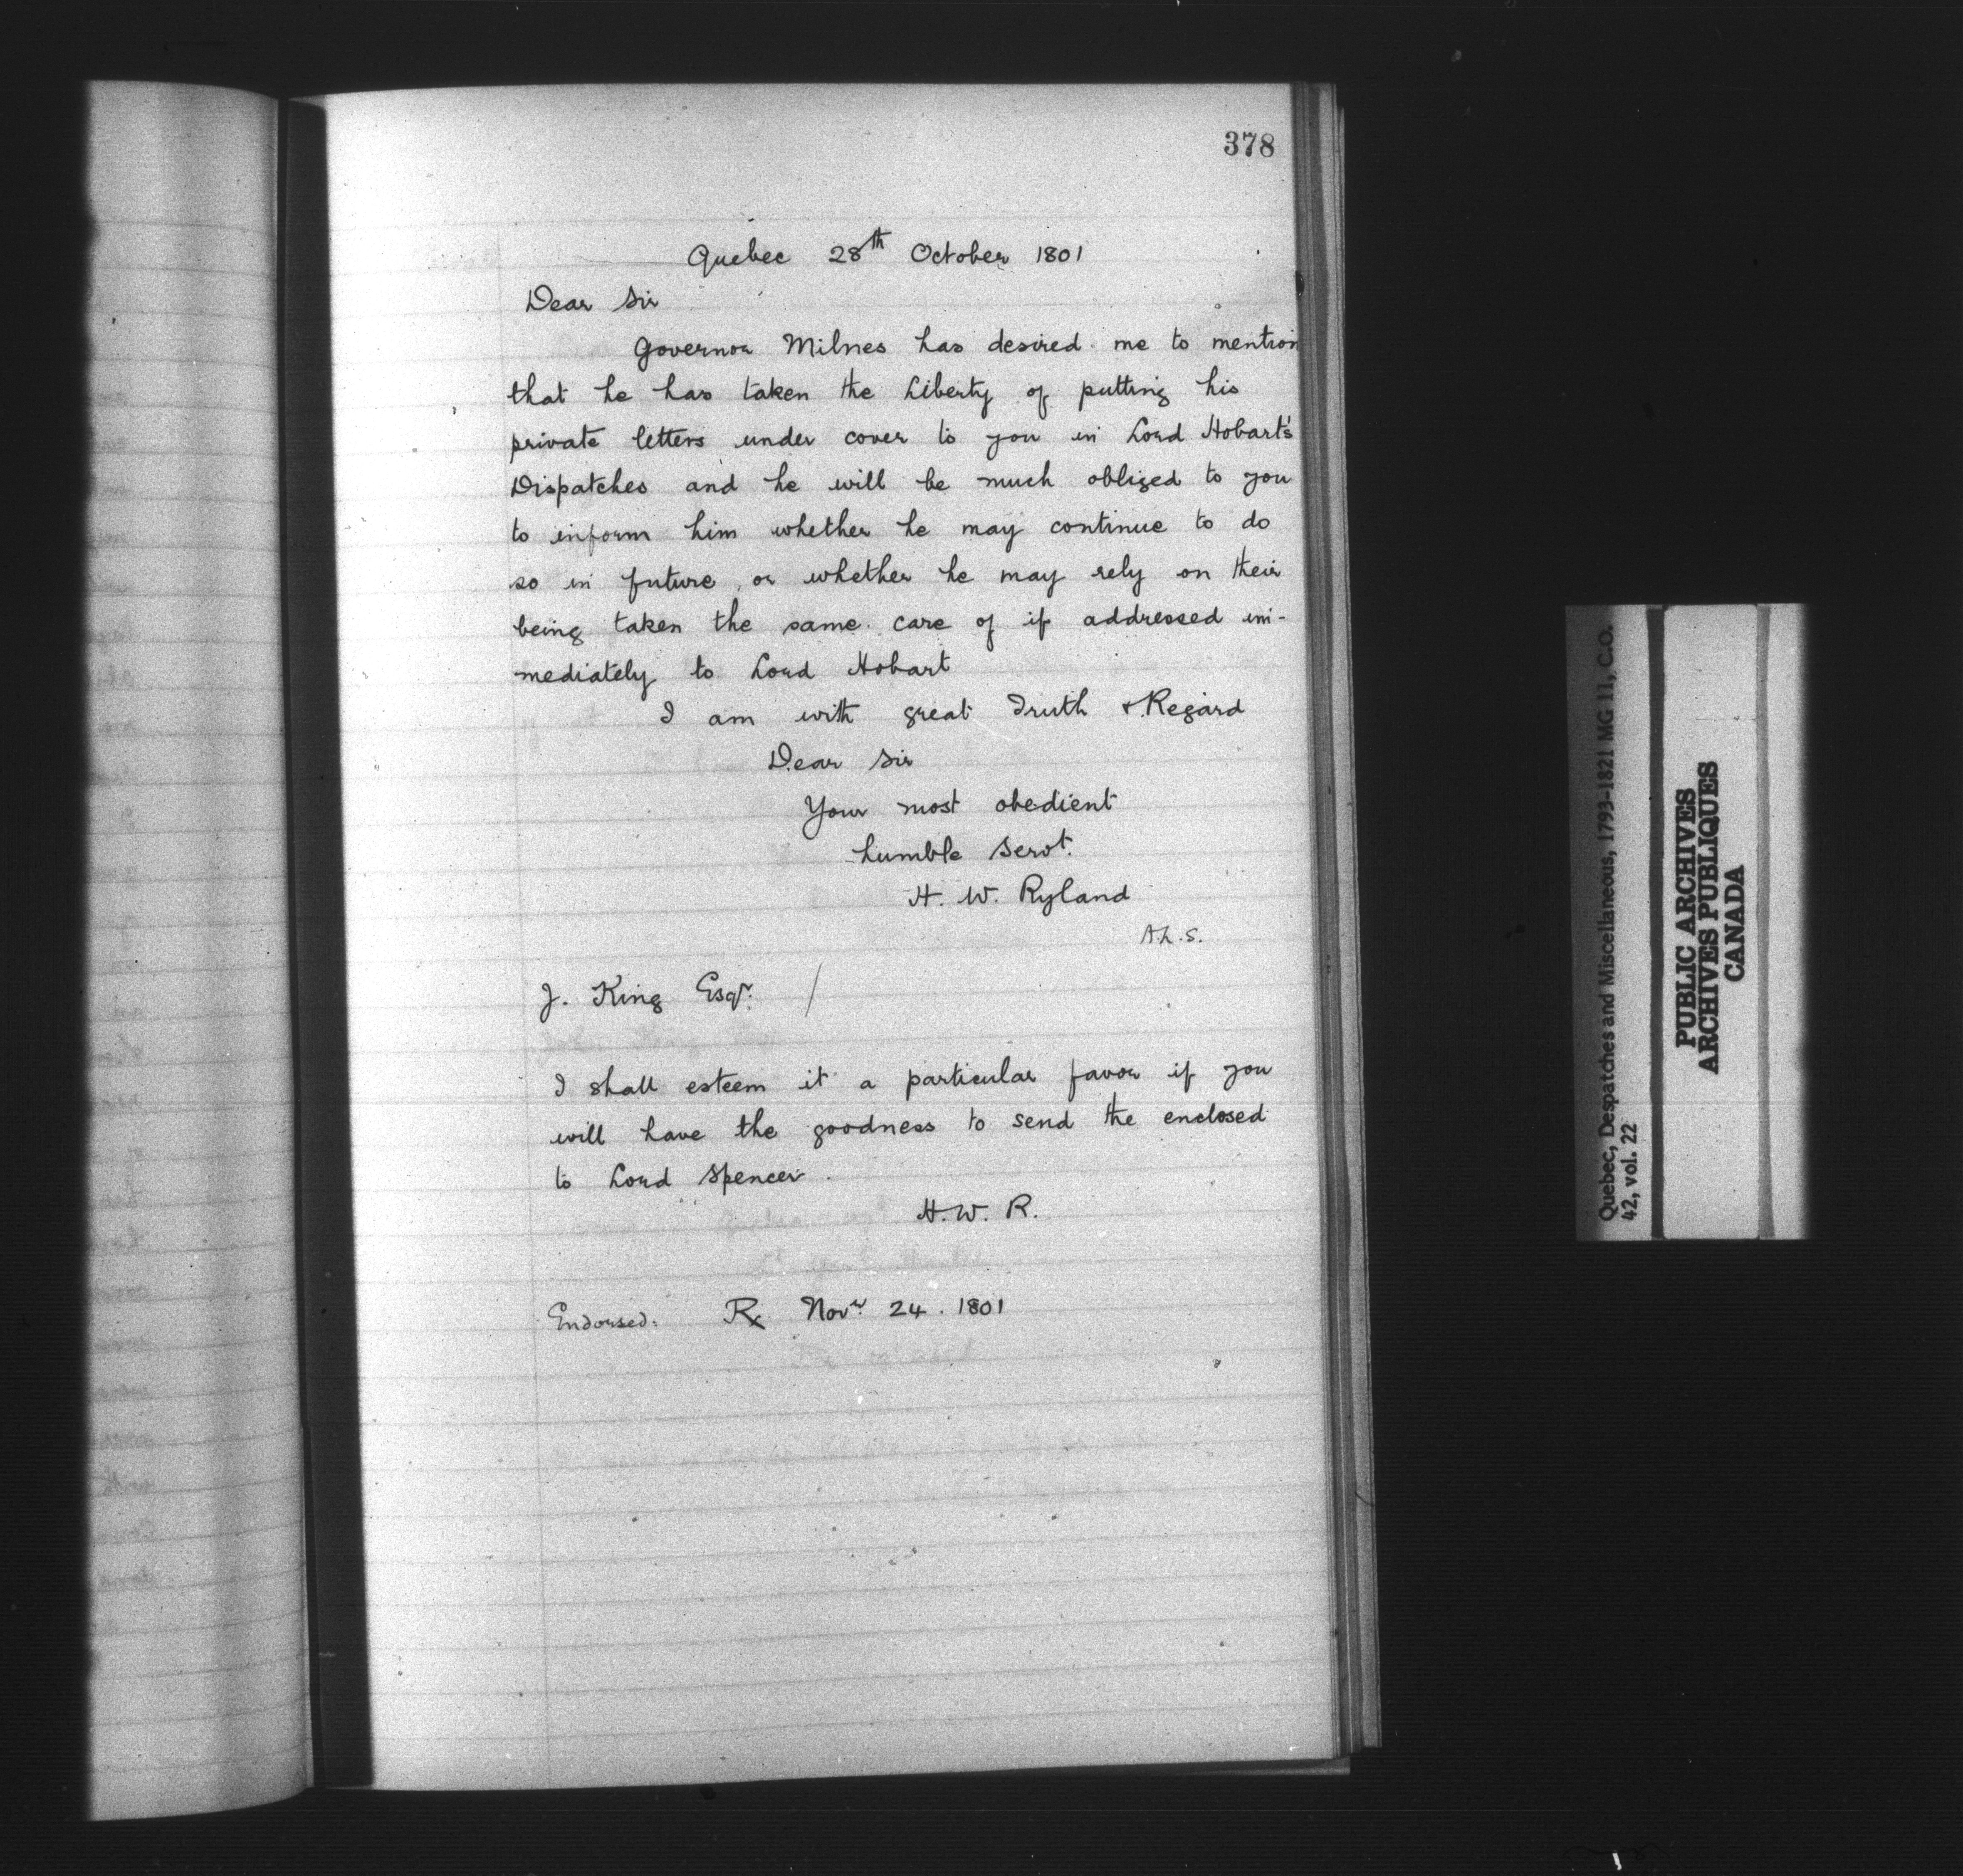 378
Quebec 28th October 1801
Dear Sir
Governor Milnes has desired me to mention
that he has taken the Liberty of putting his
private letters under cover to you in Lord Hobart's
Dispatches and he will be much obliged to you
to inform him whether he may continue to do
so in future, or whether he may rely on their
being taken the same care of if addressed im-
mediately to Lord Hobart
I am with great Truth & Regard
Dear Sir
Your most obedient
humble Servt.
H. W. Ryland
A.L.S.
J. King Esqr. /
I shall esteem it a particular favor if you
will have the goodness to send the enclosed
to Lord Spencer.
H. W. R.
Endorsed: Rx Novr. 24. 1801
Quebec, Despatches and Miscellaneous, 1793-1821 MG 11, C.O.
42, vol. 22
PUBLIC ARCHIVES
ARCHIVES PUBLIQUES
CANADA